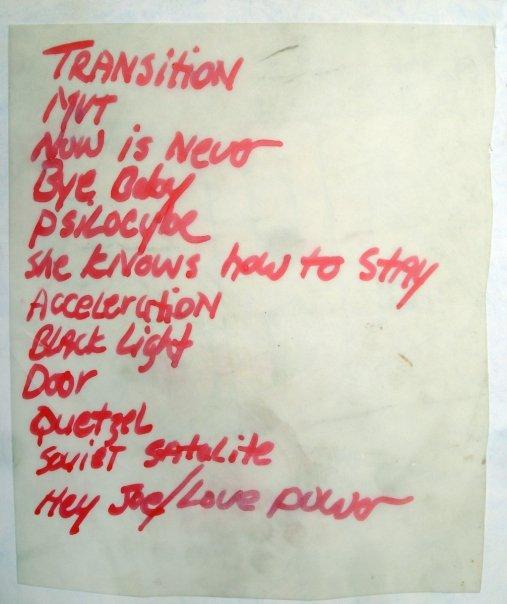 TRANSitiON
MVT
Now is Never
Bye, Baby
PSILOCYbe
She KNOWS how to STAy
AcceleratiON
BLACK Light
Door
QuetzeL
Soviet SAtaLite
Hey Joe/Love power